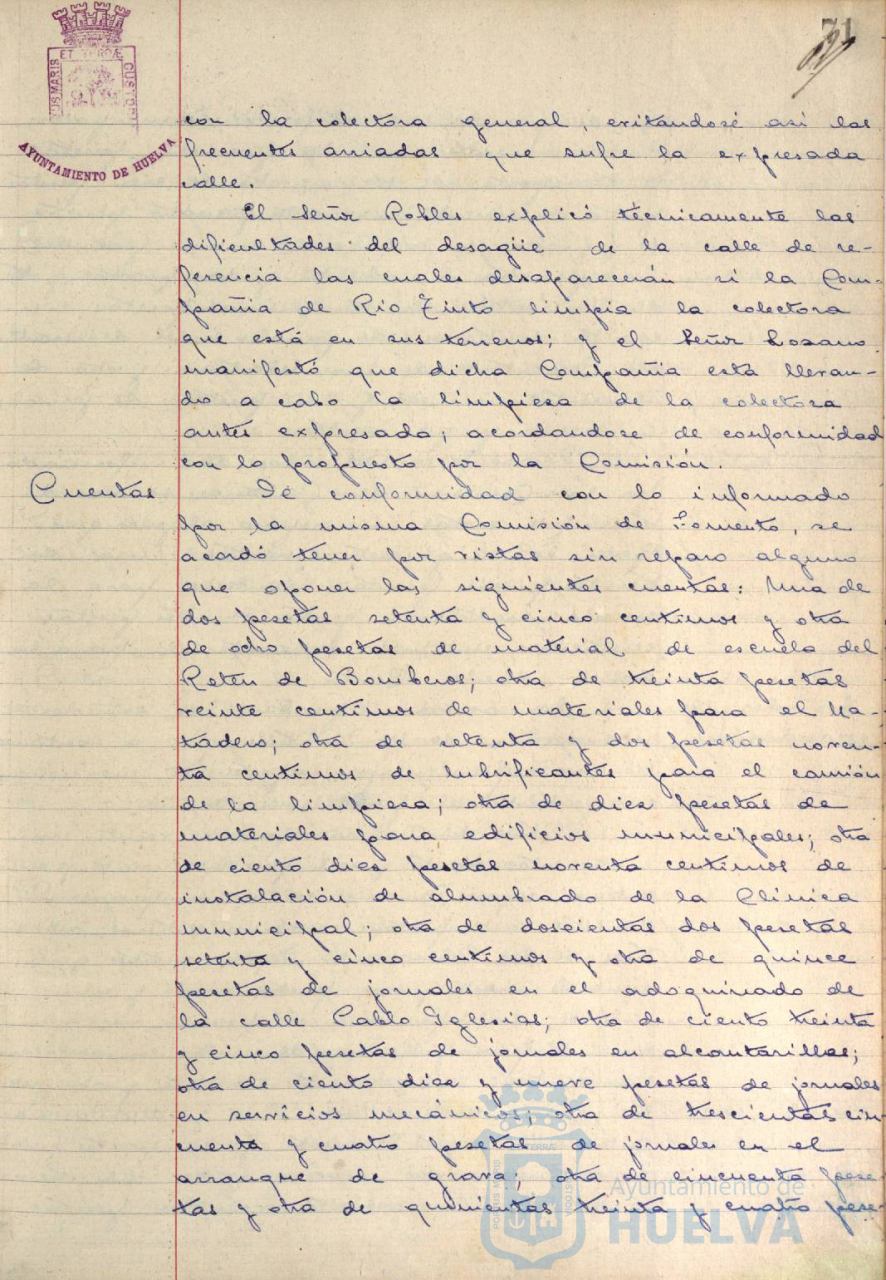 71
PORTUS MARIS ET TERRAE CUSTODIA
AYUNTAMIENTO DE HUELVA
con la colectora general, evitandose asi las
frecuentes arriadas que sufre la expresada
calle.
El Señor Robles explicó técnicamente las
dificultades del desagüe de la calle de re-
ferencia las cuales desaparecerán si la Com-
pañia de Rio Tinto limpia la colectora
que está en sus terrenos; y el Señor Lozano
manifestó que dicha Compañia está llevan-
do a cabo la limpiesa de la colectora
antes expresada; acordandose de conformidad
con lo propuesto por la Comisión.
Cuentas
De conformidad con lo informado
por la misma Comisión de Fomento, se
acordó tener por vistas sin reparo alguno
que oponer las siguientes cuentas: Una de
dos pesetas setenta y cinco centimos y otra
de ocho pesetas de material de escuela del
Reten de Bomberos; otra de treinta pesetas
veinte centimos de materiales para el Ma-
tadero; otra de setenta y dos pesetas noven-
ta centimos de lubrificantes para el camión
de la limpiesa; otra de diez pesetas de
materiales para edificios municipales; otra
de ciento diez pesetas noventa centimos de
instalación de alumbrado de la Clinica
municipal; otra de doscientas dos pesetas
setenta y cinco centimos y otra de quince
pesetas de jornales en el adoquinado de
la calle Pablo Iglesias; otra de ciento treinta
y cinco pesetas de jornales en alcantarillas;
otra de ciento diez y nueve pesetas de jornales
en servicios mecánicos; otra de trescientas cin-
cuenta y cuatro pesetas de jornales en el
arranque de grava; otra de cincuenta pese-
tas y otra de quinientas treinta y cuatro pese-
Ayuntamiento de
HUELVA